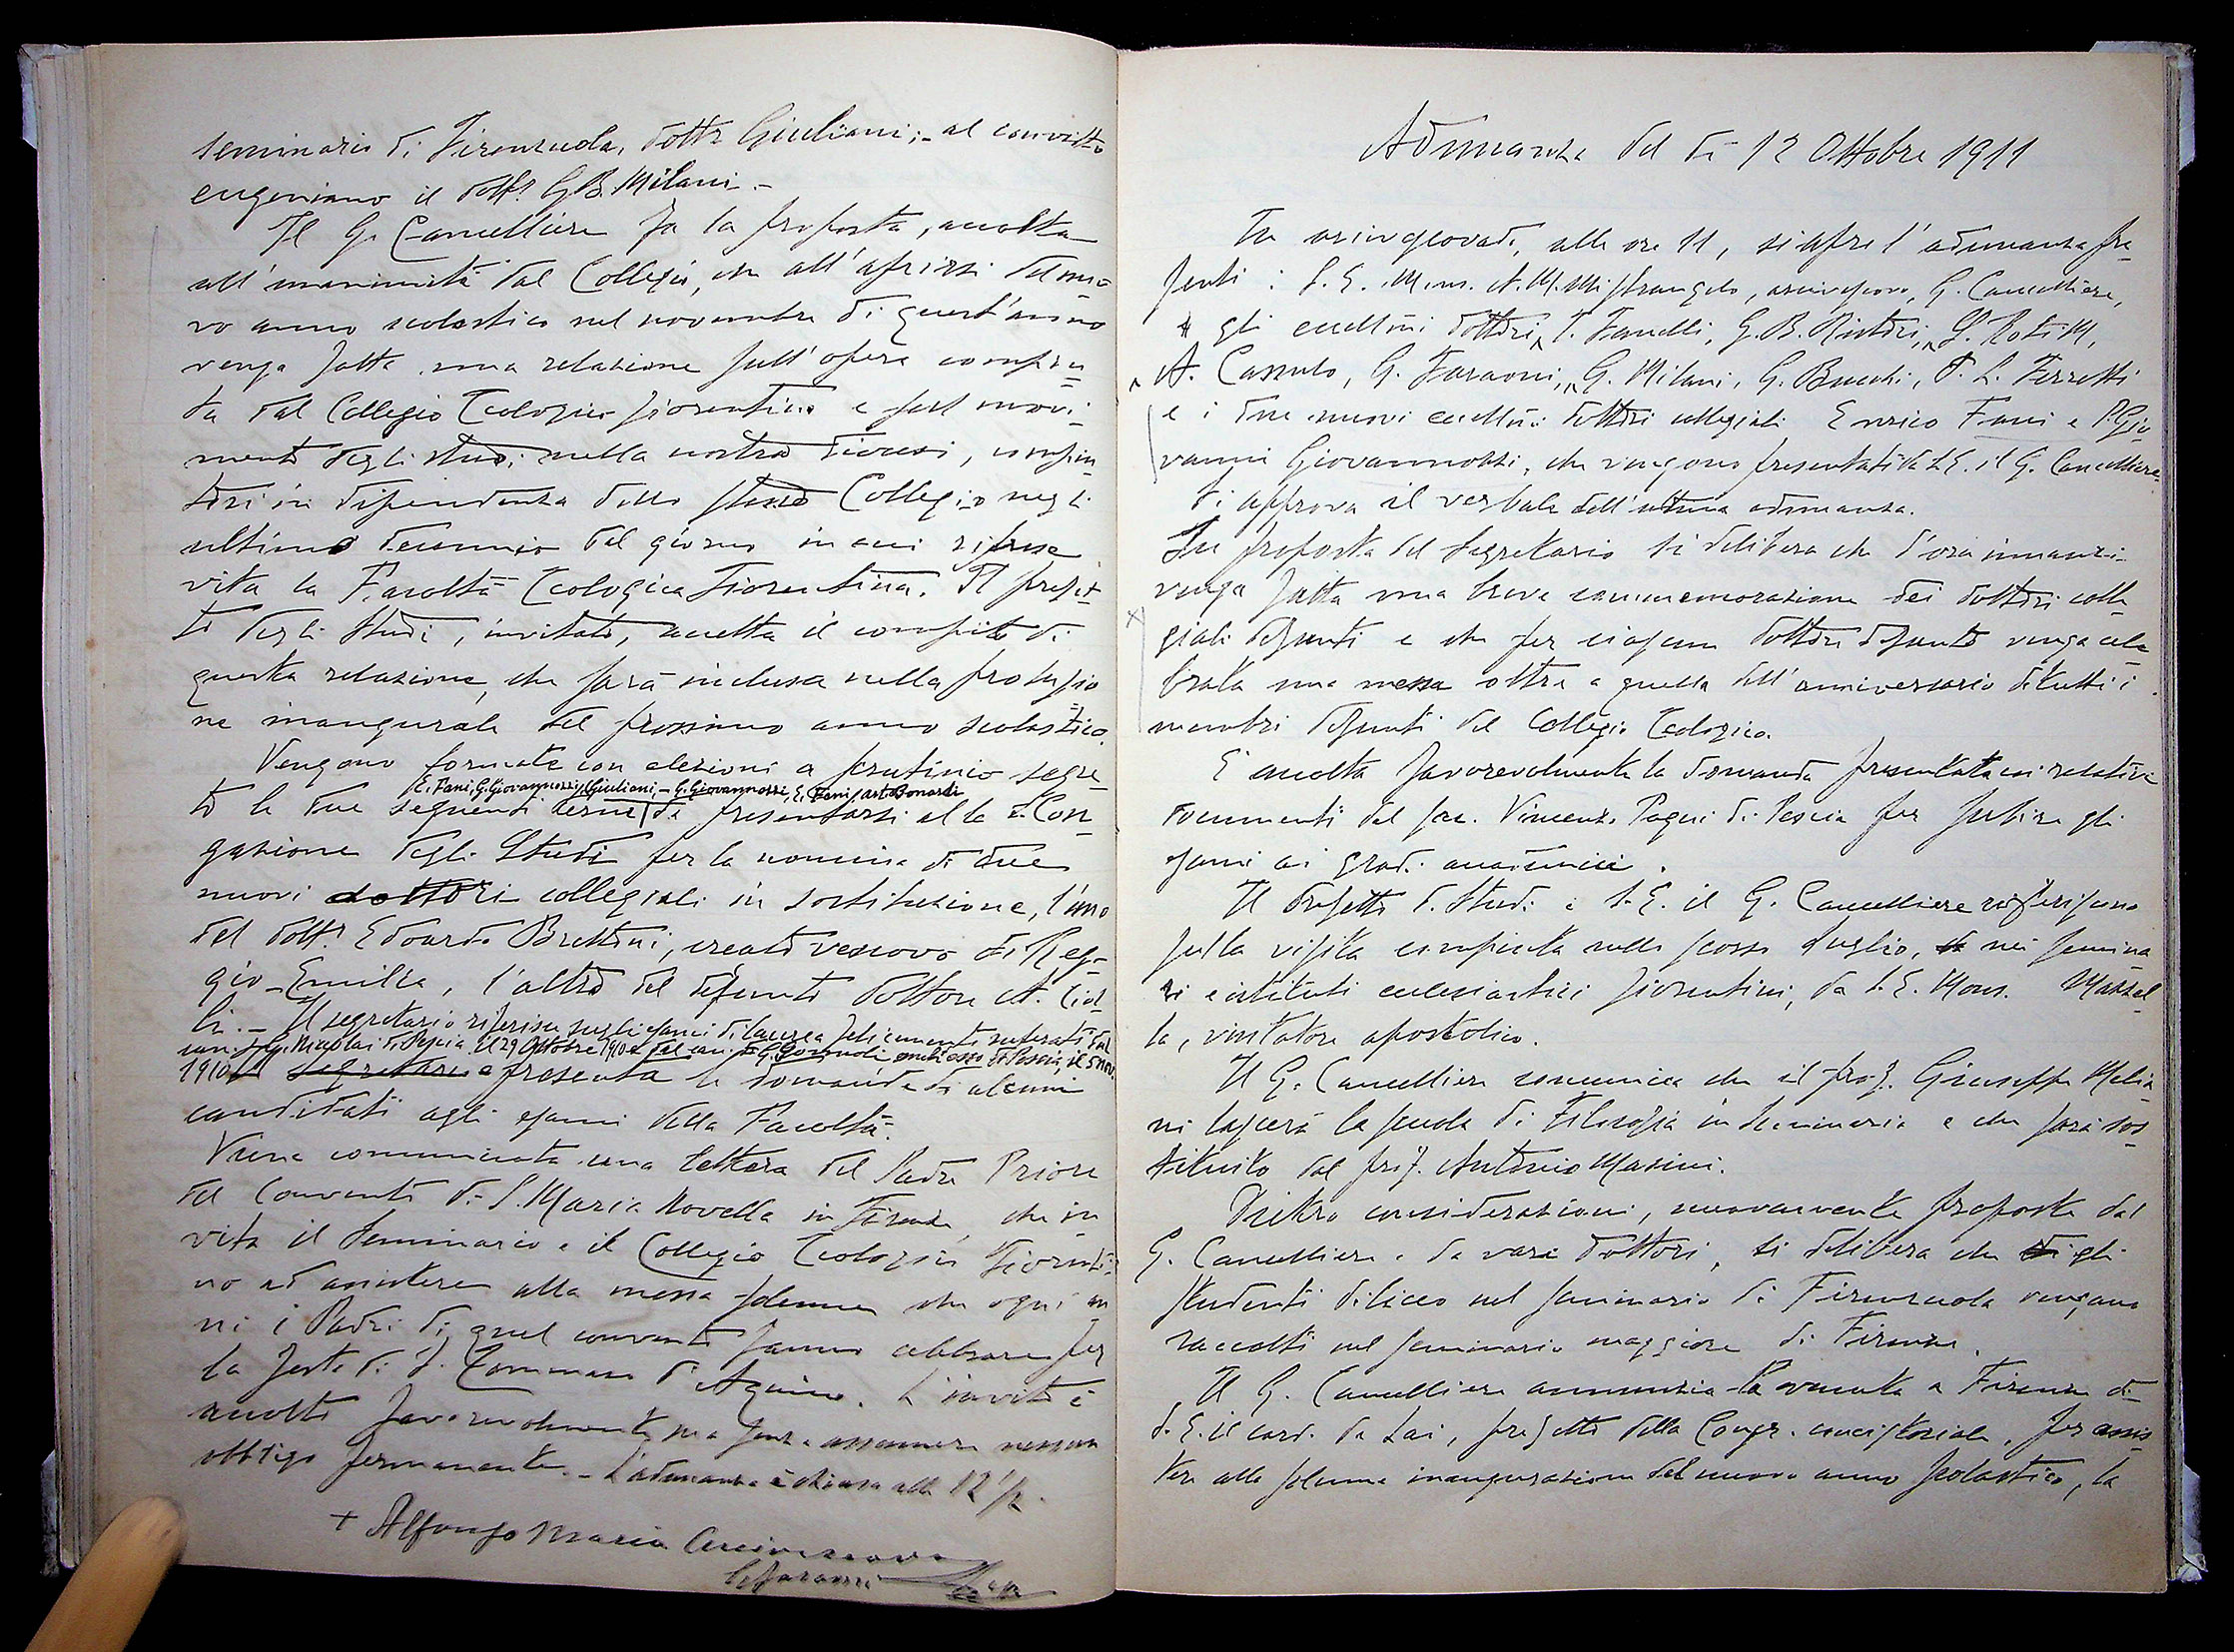 seminario di Firenzuola, dottr Giuliani; - al convitto
eugeniano il dottr. G.B. Milani. -
Il G. Cancelliere fa la proposta, accolta
all'unanimità dal Collegio, che all'aprirsi del nuo-
vo anno scolastico nel novembre di quest'anno
venga fatta una relazione sull'opera compiu-
ta dal Collegio Teologico fiorentino e sul movi-
mento degli studi nella nostra diocesi, compiu
tosi in dipendenza dello stesso Collegio negli
ultimo decennio dal giorno in cui riprese
vita la Facoltà Teologica Fiorentina. Il prefet-
to degli Studi, invitato, accetta il compito di
questa relazione, che sarà inclusa nella prolusio
ne inaugurale del prossimo anno scolastico.
Vengono formate con elezioni a scrutinio segre
E. Fani, G. Giovannozzi, Giuliani, - G. Giovannozzi, E. Fani, art. Bonardi
to le due seguenti terne da presentarsi alla S. Con
gazione degli Studi per la nomina di due
nuovi dottori collegiali in sostituzione, l'uno
del dottr. Edoardo Brettoni, creato vescovo di Reg-
gio-Emilia, l'altro del defunto dottore A. Ciol
li. - Il segretario riferisce sugli esami di laurea felicemente superati dal
can. Nicolai di Pescia il 29 Ottobre 1910 e dal can. G. anch'esso di Pescia, il 5 nov.
1910 Il segretario e presenta le domande di alcuni
candidati agli esami della Facoltà.
Viene comunicata una lettera del Padre Priore
del Convento di S. Maria Novella in Firenze, che in
vita il Seminario e il Collegio Teologico Fiorenti-
no ad assistere alla messa solenne che ogni an
ni i Padri di quel convento fanno celebrare per
la festa di S. Tommaso d'Aquino. L'invito è
accolto favorevolmente ma senza assumere nessun
obbligo permanente. - L'adunanza è chiusa alle 12 1/2.
+ Alfonso Maria Arcivescovo
G. Faraoni
Adunanza del dì 12 Ottobre 1911
In arcivescovado, alle ore 11, si apre l'adunanza pre
senti: S. E. Mons. A. M. Mistrangelo, arcivescovo, G. Cancelliere,
gli eccellmi dottori, T. Fanelli, G. B. Ristori, L. Roti M,
A. Cassulo, G. Faraoni, G. Milani, G. Bucchi, P. L. Ferretti
e i due nuovi eccellmi dottori collegiali Enrico Fani e P. Gio
vanni Giovannozzi, che vengono presentati da S. E. il G. Cancelliere.
Si approva il verbale dell'ultima adunanza.
Su proposta del Segretario si delibera che d'ora innanzi
venga fatta una breve commemorazione dei dottori colle
giali defunti e che per ciascun dottore defunto venga cele
brata una messa oltre a quella dell'anniversario di tutti i
membri defunti del Collegio Teologico.
È accolta favorevolmente la domanda presentata coi relativi
documenti dal sac. Vincenzo Pagni di Pescia per subire gli
esami ai gradi accademici.
Il Prefetto d. Studi e S. E. il G. Cancelliere riferiscono
sulla visita compiuta nello scorso Luglio, nei semina
ri e istituti ecclesiastici fiorentini, da S. E. Mons. Mazzel
la, visitatore apostolico.
Il G. Cancelliere comunica che il prof. Giuseppe Mela
ni lascerà la scuola di Filosofia in Seminario e che sarà sos
tituito dal prof. Antonio Masini.
Dietro considerazioni, nuovamente proposte dal
G. Cancelliere e da vari dottori, si delibera che gli
studenti di liceo nel seminario di Firenzuola vengano
raccolti nel seminario maggiore di Firenze.
Il G. Cancelliere annunzia la venuta a Firenze di
S. E. il card. De Lai, prefetto della Congr. concistoriale, per assis
tere alla solenne inaugurazione del nuovo anno scolastico, la